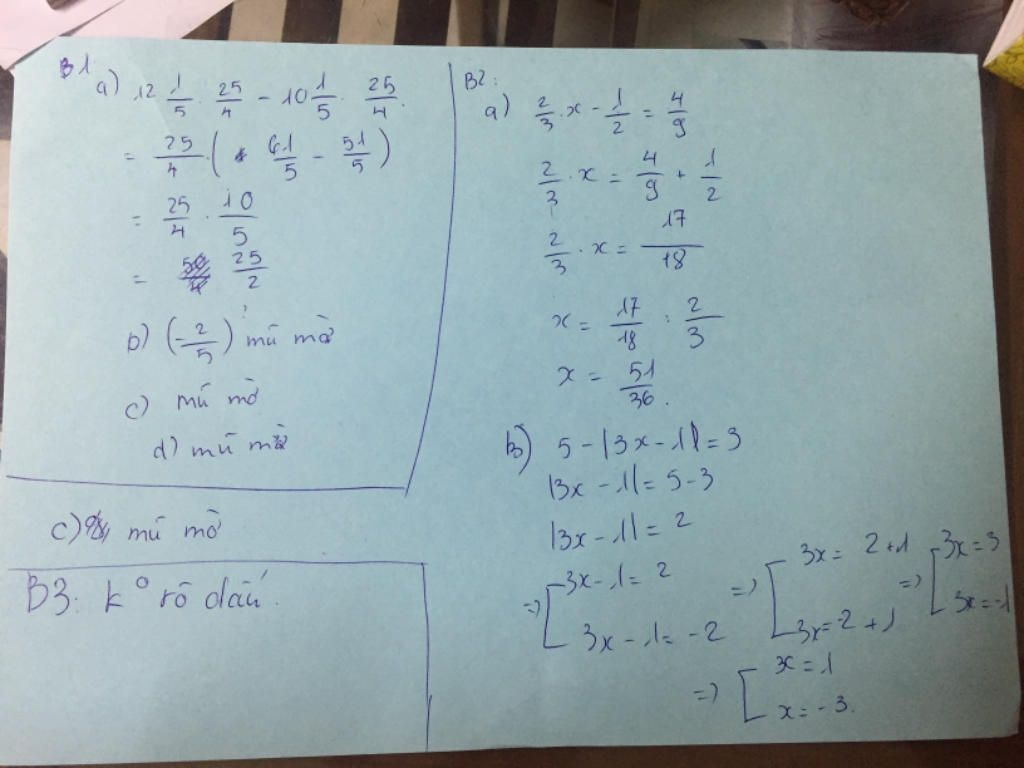 B1:
a) 12 1/5 . 25/4 - 10 1/5 . 25/4.
= 25/4 . ( 61/5 - 51/5 )
= 25/4 . 10/5
= 25/2
b) (-2/5) mũ mờ
c) mũ mờ
d) mũ mờ
c) mũ mờ
B3: k° rõ dấu.
B2:
a) 2/3 . x - 1/2 = 4/9
2/3 . x = 4/9 + 1/2
2/3 . x = 17/18
x = 17/18 : 2/3
x = 51/36.
b) 5 - |3x - 1| = 3
|3x - 1| = 5 - 3
|3x - 1| = 2
=> [ 3x - 1 = 2 => [ 3x = 2 + 1 => [ 3x = 3
3x - 1 = -2 3x = -2 + 1 3x = -1
=> [ x = 1
x = -3.